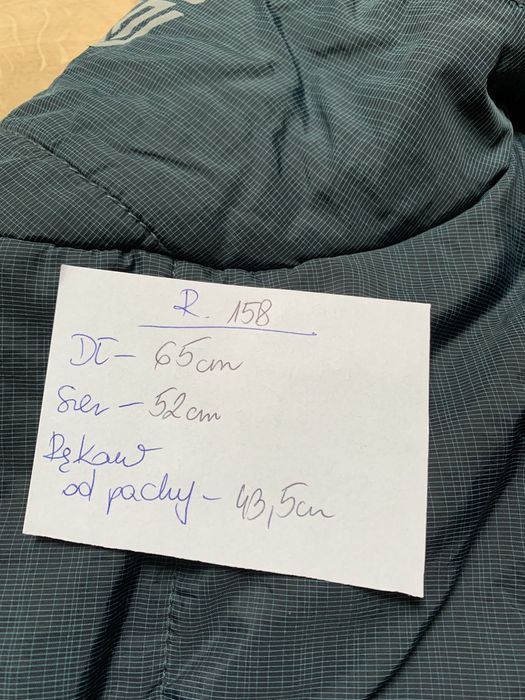 R. 158
Dł - 65cm
Szer - 52cm
Rękaw
od pachy - 43,5cm